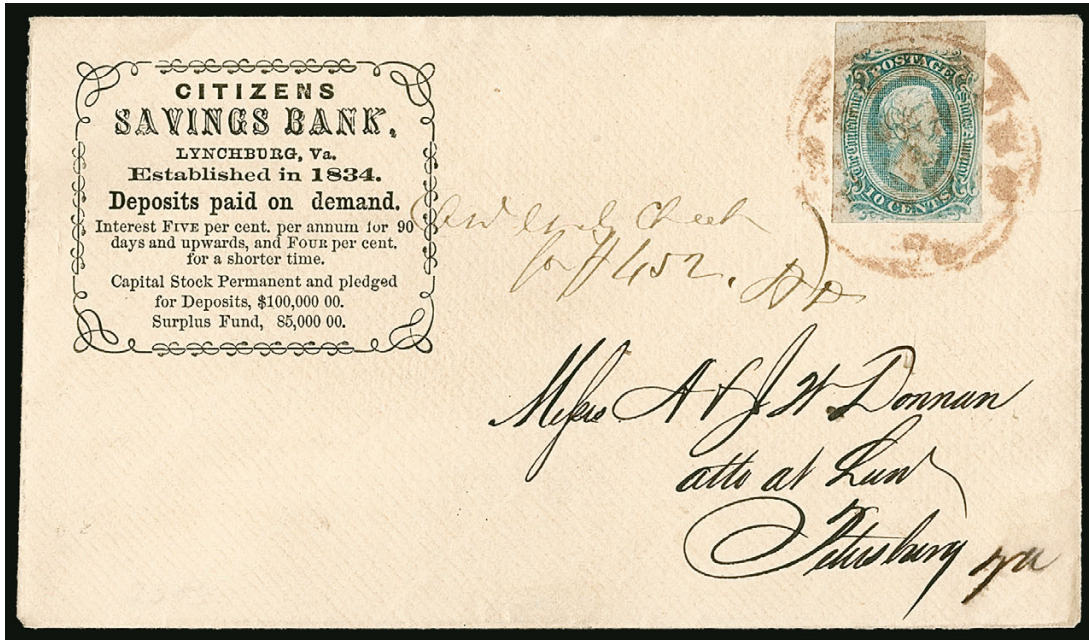 CITIZENS
SAVINGS BANK,
LYNCHBURG, Va.
Established in 1834.
Deposits paid on demand.
Interest FIVE per cent. per annum for 90
days and upwards, and FOUR per cent.
for a shorter time.
Capital Stock Permanent and pledged
for Deposits, $100,000 00.
Surplus Fund, 85,000 00.
POSTAGE
The Confederate States of America
10 CENTS
check
for $452.
Messrs A & J. W. Donnan
atto at Law
Petersburg Va